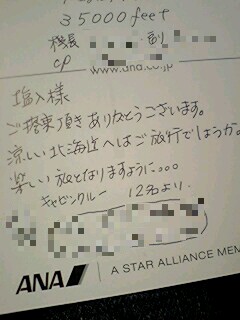 35000 feet
機長
CP
www.ana.co.jp
塩入様
ご搭乗頂きありがとうございます。
涼しい北海道へはご旅行でしょうか。
楽しい旅となりますように。。。
キャビンクルー 12名より.
ANA
A STAR ALLIANCE MEM